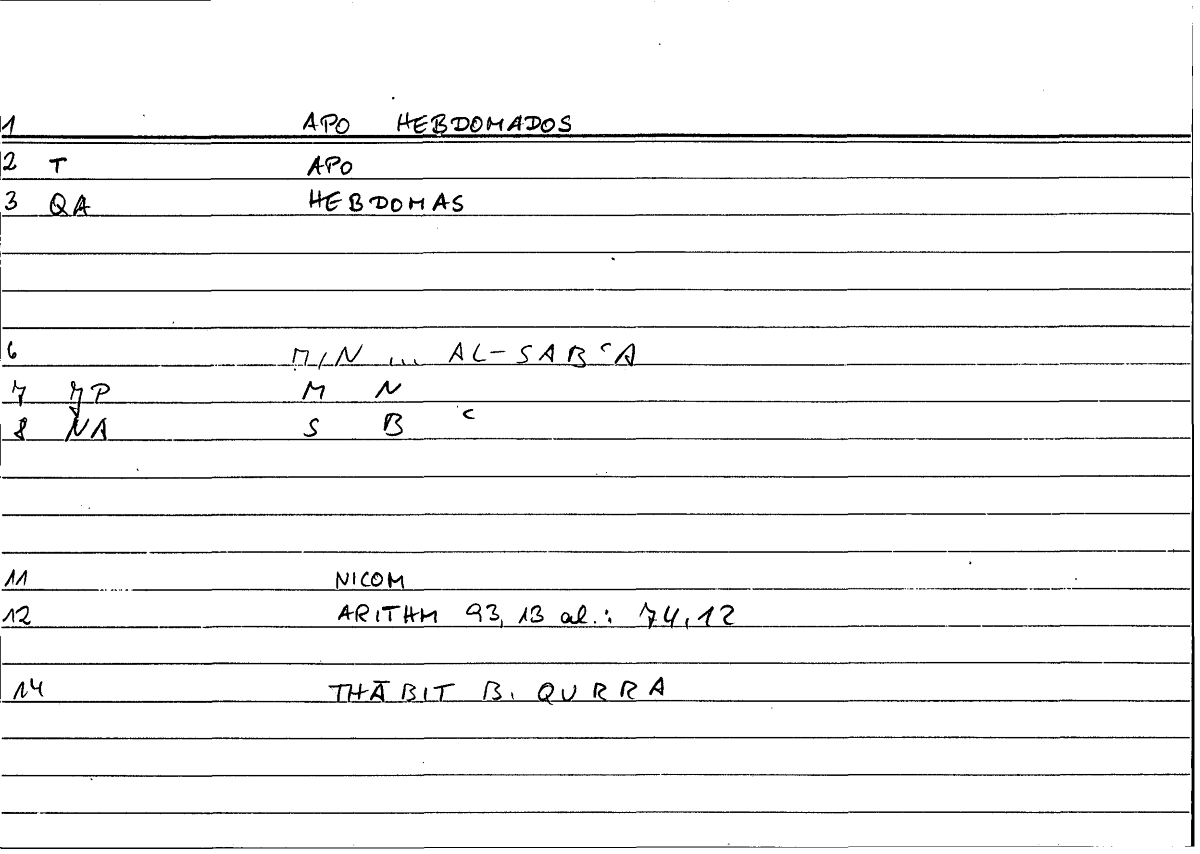 1 APO HEBDOMADOS
2 T APO
3 QA HEBDOMAS
6 MIN ... AL-SABʿA
7 JP M N
8 NA S B ʿ
11 NICOM
12 ARITHM 93,13 al.: 74,12
14 THĀBIT B. QURRA